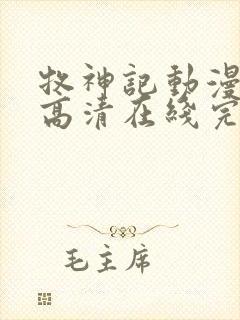 牧神記動漫
高清在綫完
毛主席